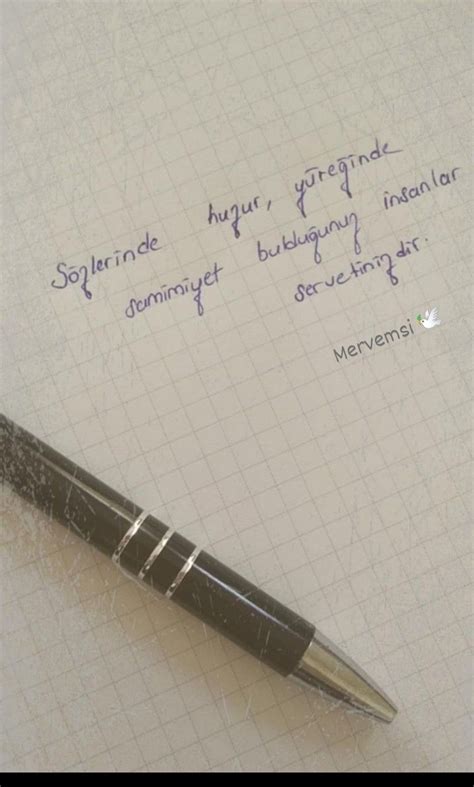 Sözlerinde huzur, yüreğinde
samimiyet bulduğunuz insanlar
servetinizdir.
Mervemsi 🕊